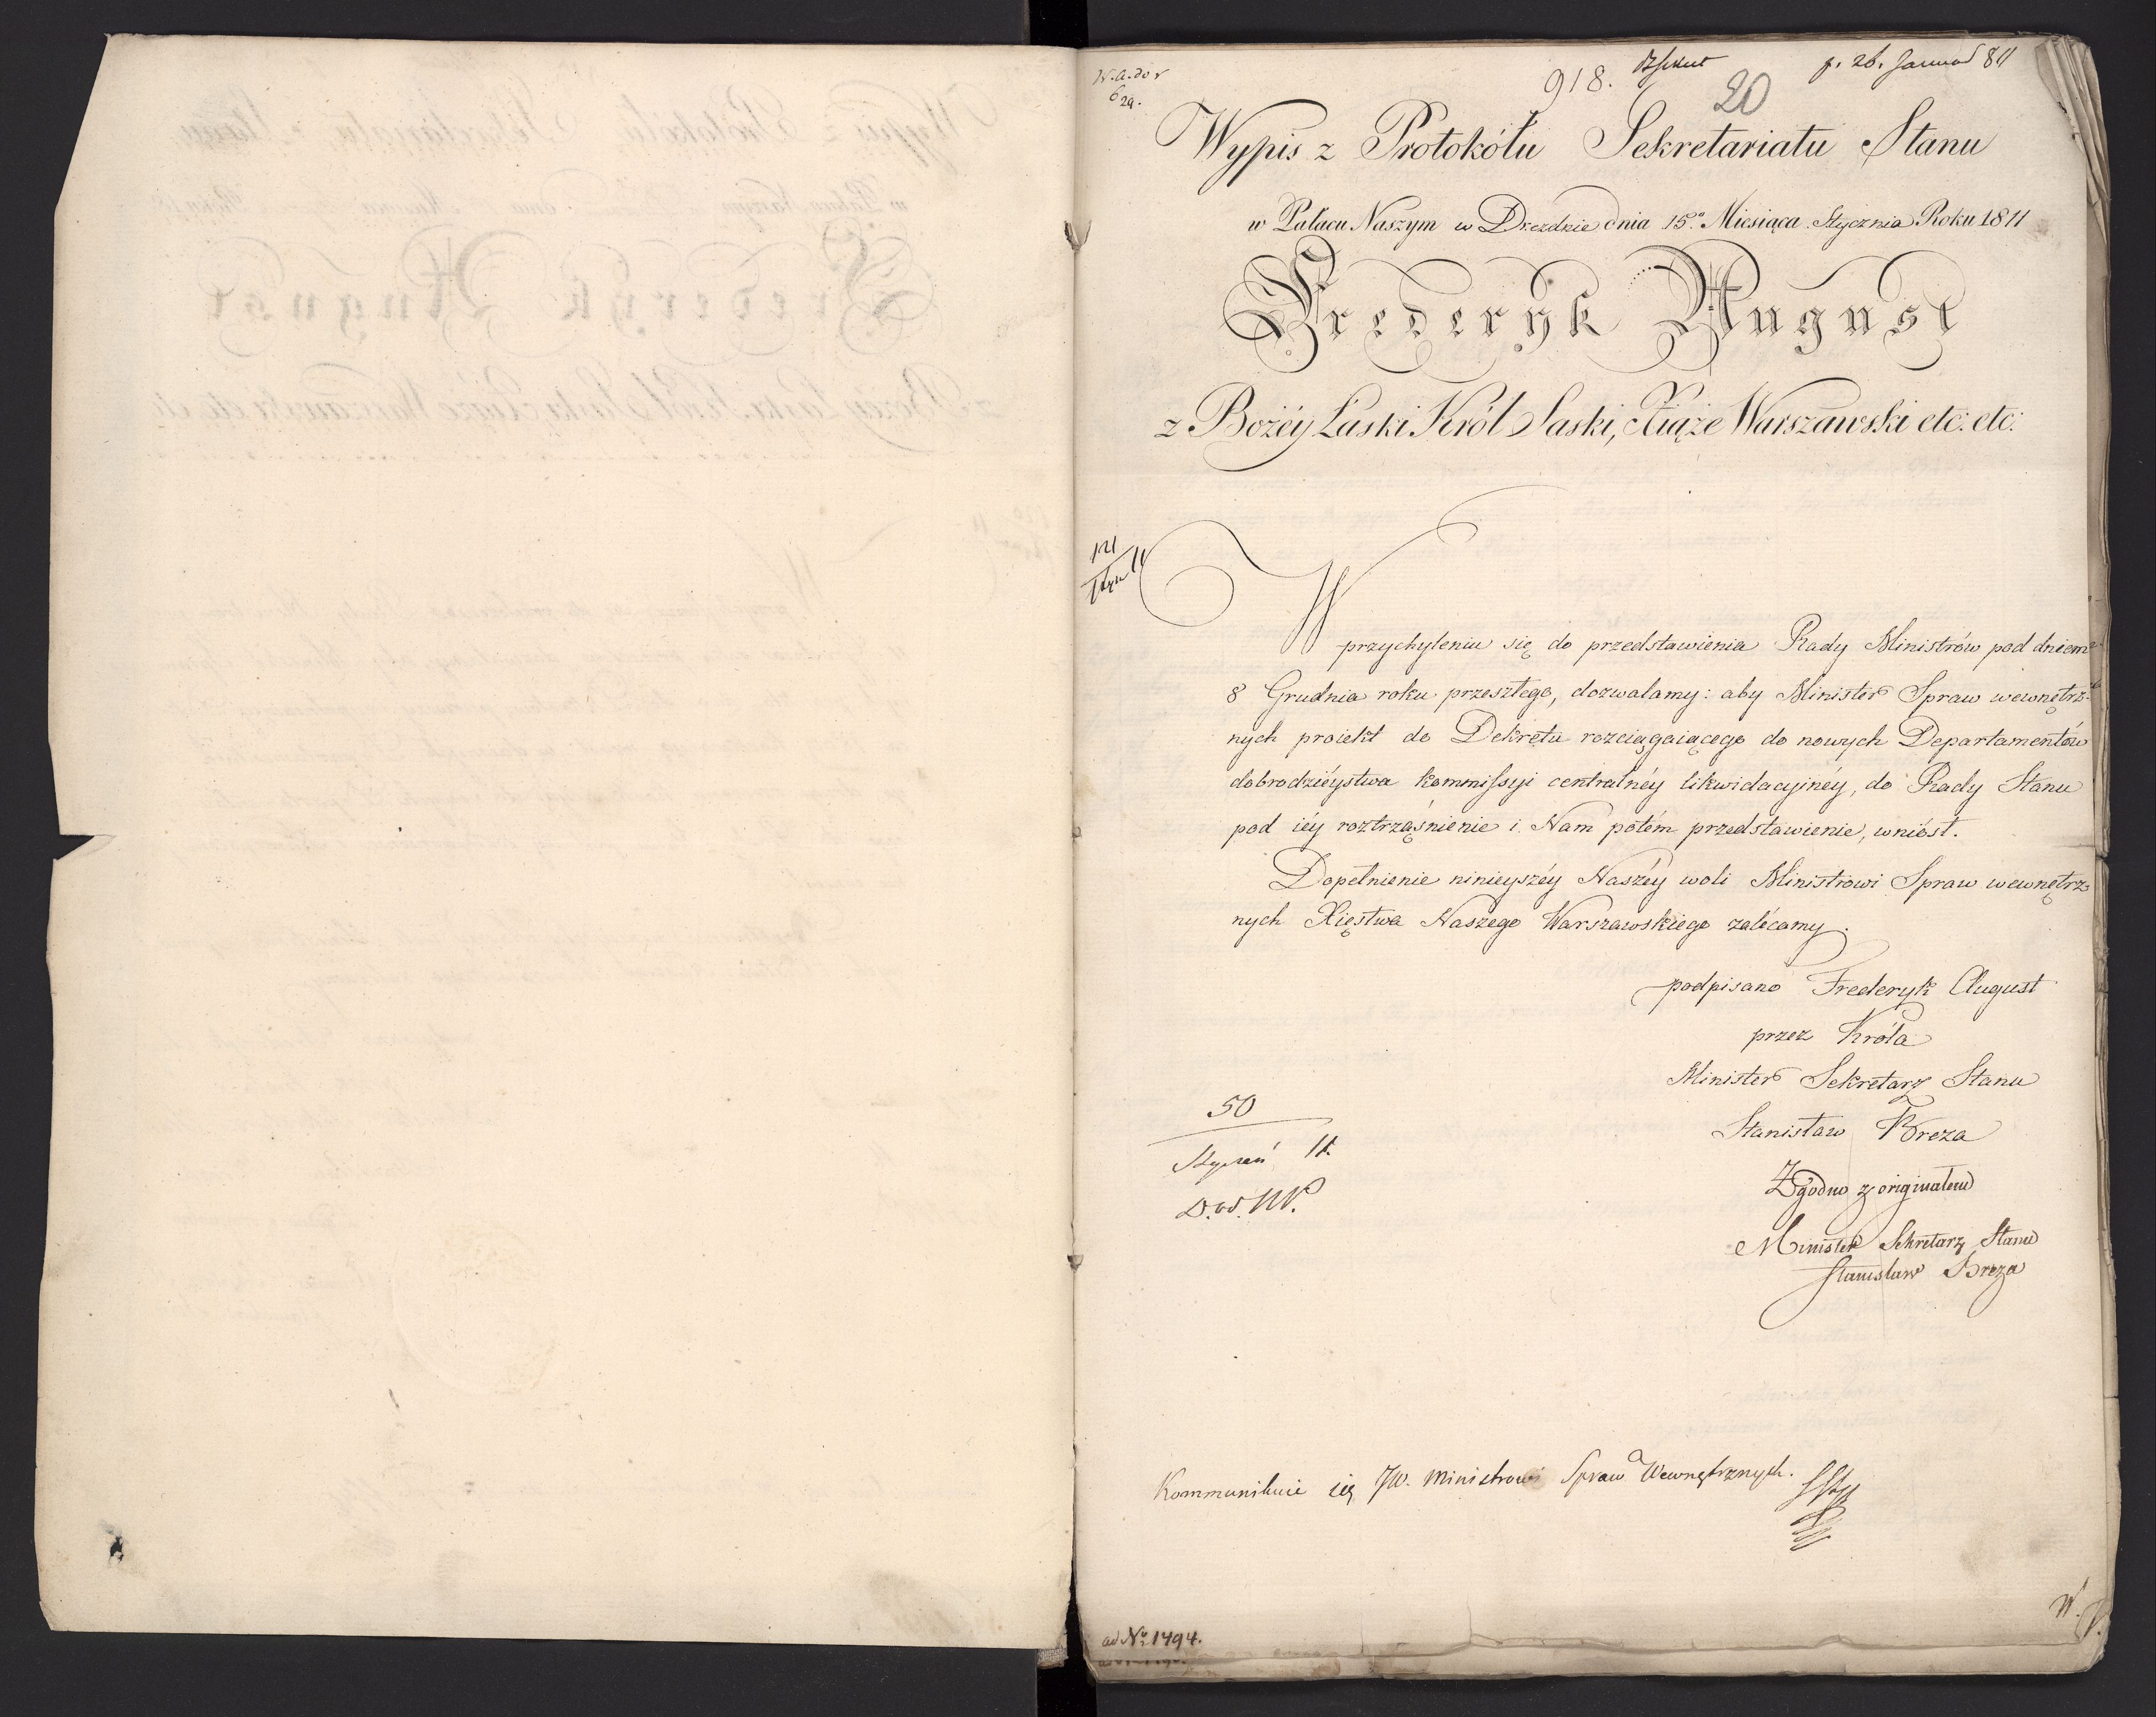 918.
20
p. 26. Januar 811
Wypis z Protokółu Sekretariatu Stanu
w Pałacu Naszym w Dreźdnie dnia 15º Miesiąca Stycznia Roku 1811
Frederyk August
z Bożéy Łaski Król Saski, Xiąże Warszawski etc: etc:
W
przychyleniu się do przedstawienia Rady Ministrów pod dniem
8 Grudnia roku przeszłego, dozwalamy: aby Minister Spraw wewnętrz-
nych proiekt do Dekretu rozciągaiącego do nowych Departamentów
dobrodziéystwa kommissyi centralnéy likwidacyinéy, do Rady Stanu
pod iéy roztrząśnienie i Nam potém przedstawienie, wniósł.
Dopełnienie ninieyszéy Naszéy woli Ministrowi Spraw wewnętrz-
nych Xięstwa Naszego Warszawskiego zalécamy.
podpisano Frederyk August
przez Króla
Minister Sekretarz Stanu
Stanisław Breza
Zgodno z originałem
Minister Sekretarz Stanu
Stanisław Breza
50
Styczeń 11.
Kommunikuie się JW. Ministrowi Spraw Wewnętrznych.
ad Nº 1494.